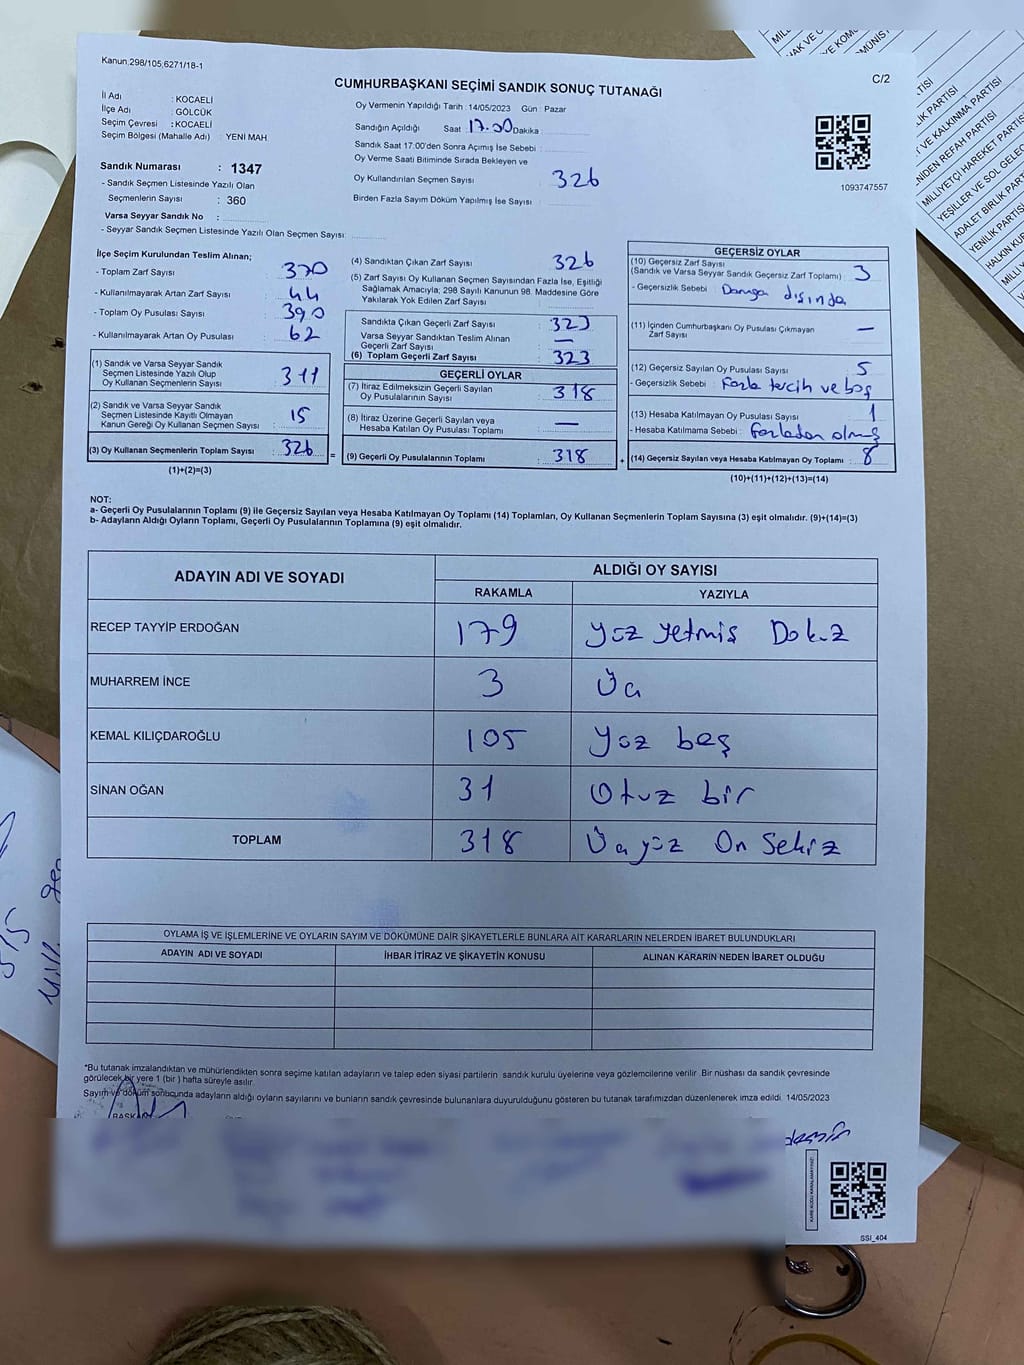 Kanun.298/105,6271/18-1
C/2
CUMHURBAŞKANI SEÇİMİ SANDIK SONUÇ TUTANAĞI
İl Adı : KOCAELİ
İlçe Adı : GÖLCÜK
Seçim Çevresi : KOCAELİ
Seçim Bölgesi (Mahalle Adı) : YENİ MAH.
Sandık Numarası : 1347
- Sandık Seçmen Listesinde Yazılı Olan
Seçmenlerin Sayısı : 360
Varsa Seyyar Sandık No :
- Seyyar Sandık Seçmen Listesinde Yazılı Olan Seçmen Sayısı:
Oy Vermenin Yapıldığı Tarih : 14/05/2023 Gün : Pazar
Sandığın Açıldığı Saat : 17.00 Dakika :
Sandık Saat 17:00'den Sonra Açımış İse Sebebi :
Oy Verme Saati Bitiminde Sırada Bekleyen ve
Oy Kullandırılan Seçmen Sayısı 326
Birden Fazla Sayım Döküm Yapılmış İse Sayısı :
1093747557
İlçe Seçim Kurulundan Teslim Alınan;
- Toplam Zarf Sayısı : 370
- Kullanılmayarak Artan Zarf Sayısı : 44
- Toplam Oy Pusulası Sayısı : 390
- Kullanılmayarak Artan Oy Pusulası : 62
(1) Sandık ve Varsa Seyyar Sandık
Seçmen Listesinde Yazılı Olup
Oy Kullanan Seçmenlerin Sayısı : 311
(2) Sandık ve Varsa Seyyar Sandık
Seçmen Listesinde Kayıtlı Olmayan
Kanun Gereği Oy Kullanan Seçmen Sayısı : 15
(3) Oy Kullanan Seçmenlerin Toplam Sayısı : 326 =
(1)+(2)=(3)
(4) Sandıktan Çıkan Zarf Sayısı 326
(5) Zarf Sayısı Oy Kullanan Seçmen Sayısından Fazla İse, Eşitliği
Sağlamak Amacıyla; 298 Sayılı Kanunun 98. Maddesine Göre
Yakılarak Yok Edilen Zarf Sayısı
Sandıkta Çıkan Geçerli Zarf Sayısı : 323
Varsa Seyyar Sandıktan Teslim Alınan
Geçerli Zarf Sayısı : —
(6) Toplam Geçerli Zarf Sayısı : 323
GEÇERLİ OYLAR
(7) İtiraz Edilmeksizin Geçerli Sayılan
Oy Pusulalarının Sayısı : 318
(8) İtiraz Üzerine Geçerli Sayılan veya
Hesaba Katılan Oy Pusulası Toplamı : —
(9) Geçerli Oy Pusulalarının Toplamı : 318 +
GEÇERSİZ OYLAR
(10) Geçersiz Zarf Sayısı
(Sandık ve Varsa Seyyar Sandık Geçersiz Zarf Toplamı) : 3
- Geçersizlik Sebebi : Damga dışında
(11) İçinden Cumhurbaşkanı Oy Pusulası Çıkmayan
Zarf Sayısı : —
(12) Geçersiz Sayılan Oy Pusulası Sayısı : 5
- Geçersizlik Sebebi : Fazla tercih ve boş
(13) Hesaba Katılmayan Oy Pusulası Sayısı : 1
- Hesaba Katılmama Sebebi : Fazladan olmuş
(14) Geçersiz Sayılan veya Hesaba Katılmayan Oy Toplamı : 8
(10)+(11)+(12)+(13)=(14)
NOT:
a- Geçerli Oy Pusulalarının Toplamı (9) ile Geçersiz Sayılan veya Hesaba Katılmayan Oy Toplamı (14) Toplamları, Oy Kullanan Seçmenlerin Toplam Sayısına (3) eşit olmalıdır. (9)+(14)=(3)
b- Adayların Aldığı Oyların Toplamı, Geçerli Oy Pusulalarının Toplamına (9) eşit olmalıdır.
ADAYIN ADI VE SOYADI
ALDIĞI OY SAYISI
RAKAMLA YAZIYLA
RECEP TAYYİP ERDOĞAN 179 yüz yetmiş Dokuz
MUHARREM İNCE 3 Üç
KEMAL KILIÇDAROĞLU 105 yüz beş
SİNAN OĞAN 31 Otuz bir
TOPLAM 318 Üç yüz On Sekiz
OYLAMA İŞ VE İŞLEMLERİNE VE OYLARIN SAYIM VE DÖKÜMÜNE DAİR ŞİKAYETLERLE BUNLARA AİT KARARLARIN NELERDEN İBARET BULUNDUKLARI
ADAYIN ADI VE SOYADI İHBAR İTİRAZ VE ŞİKAYETİN KONUSU ALINAN KARARIN NEDEN İBARET OLDUĞU
*Bu tutanak imzalandıktan ve mühürlendikten sonra seçime katılan adayların ve talep eden siyasi partilerin sandık kurulu üyelerine veya gözlemcilerine verilir. Bir nüshası da sandık çevresinde
görülecek bir yere 1 (bir) hafta süreyle asılır.
Sayım ve döküm sonucunda adayların aldığı oyların sayılarını ve bunların sandık çevresinde bulunanlara duyurulduğunu gösteren bu tutanak tarafımızdan düzenlenerek imza edildi. 14/05/2023
BAŞKAN
SSI_404
VE KALKINMA PARTİSİ
YENİDEN REFAH PARTİSİ
MİLLİYETÇİ HAREKET PARTİSİ
YEŞİLLER VE SOL GELECEK
ADALET BİRLİK PARTİSİ
YENİLİK PARTİSİ
HALKIN KUR